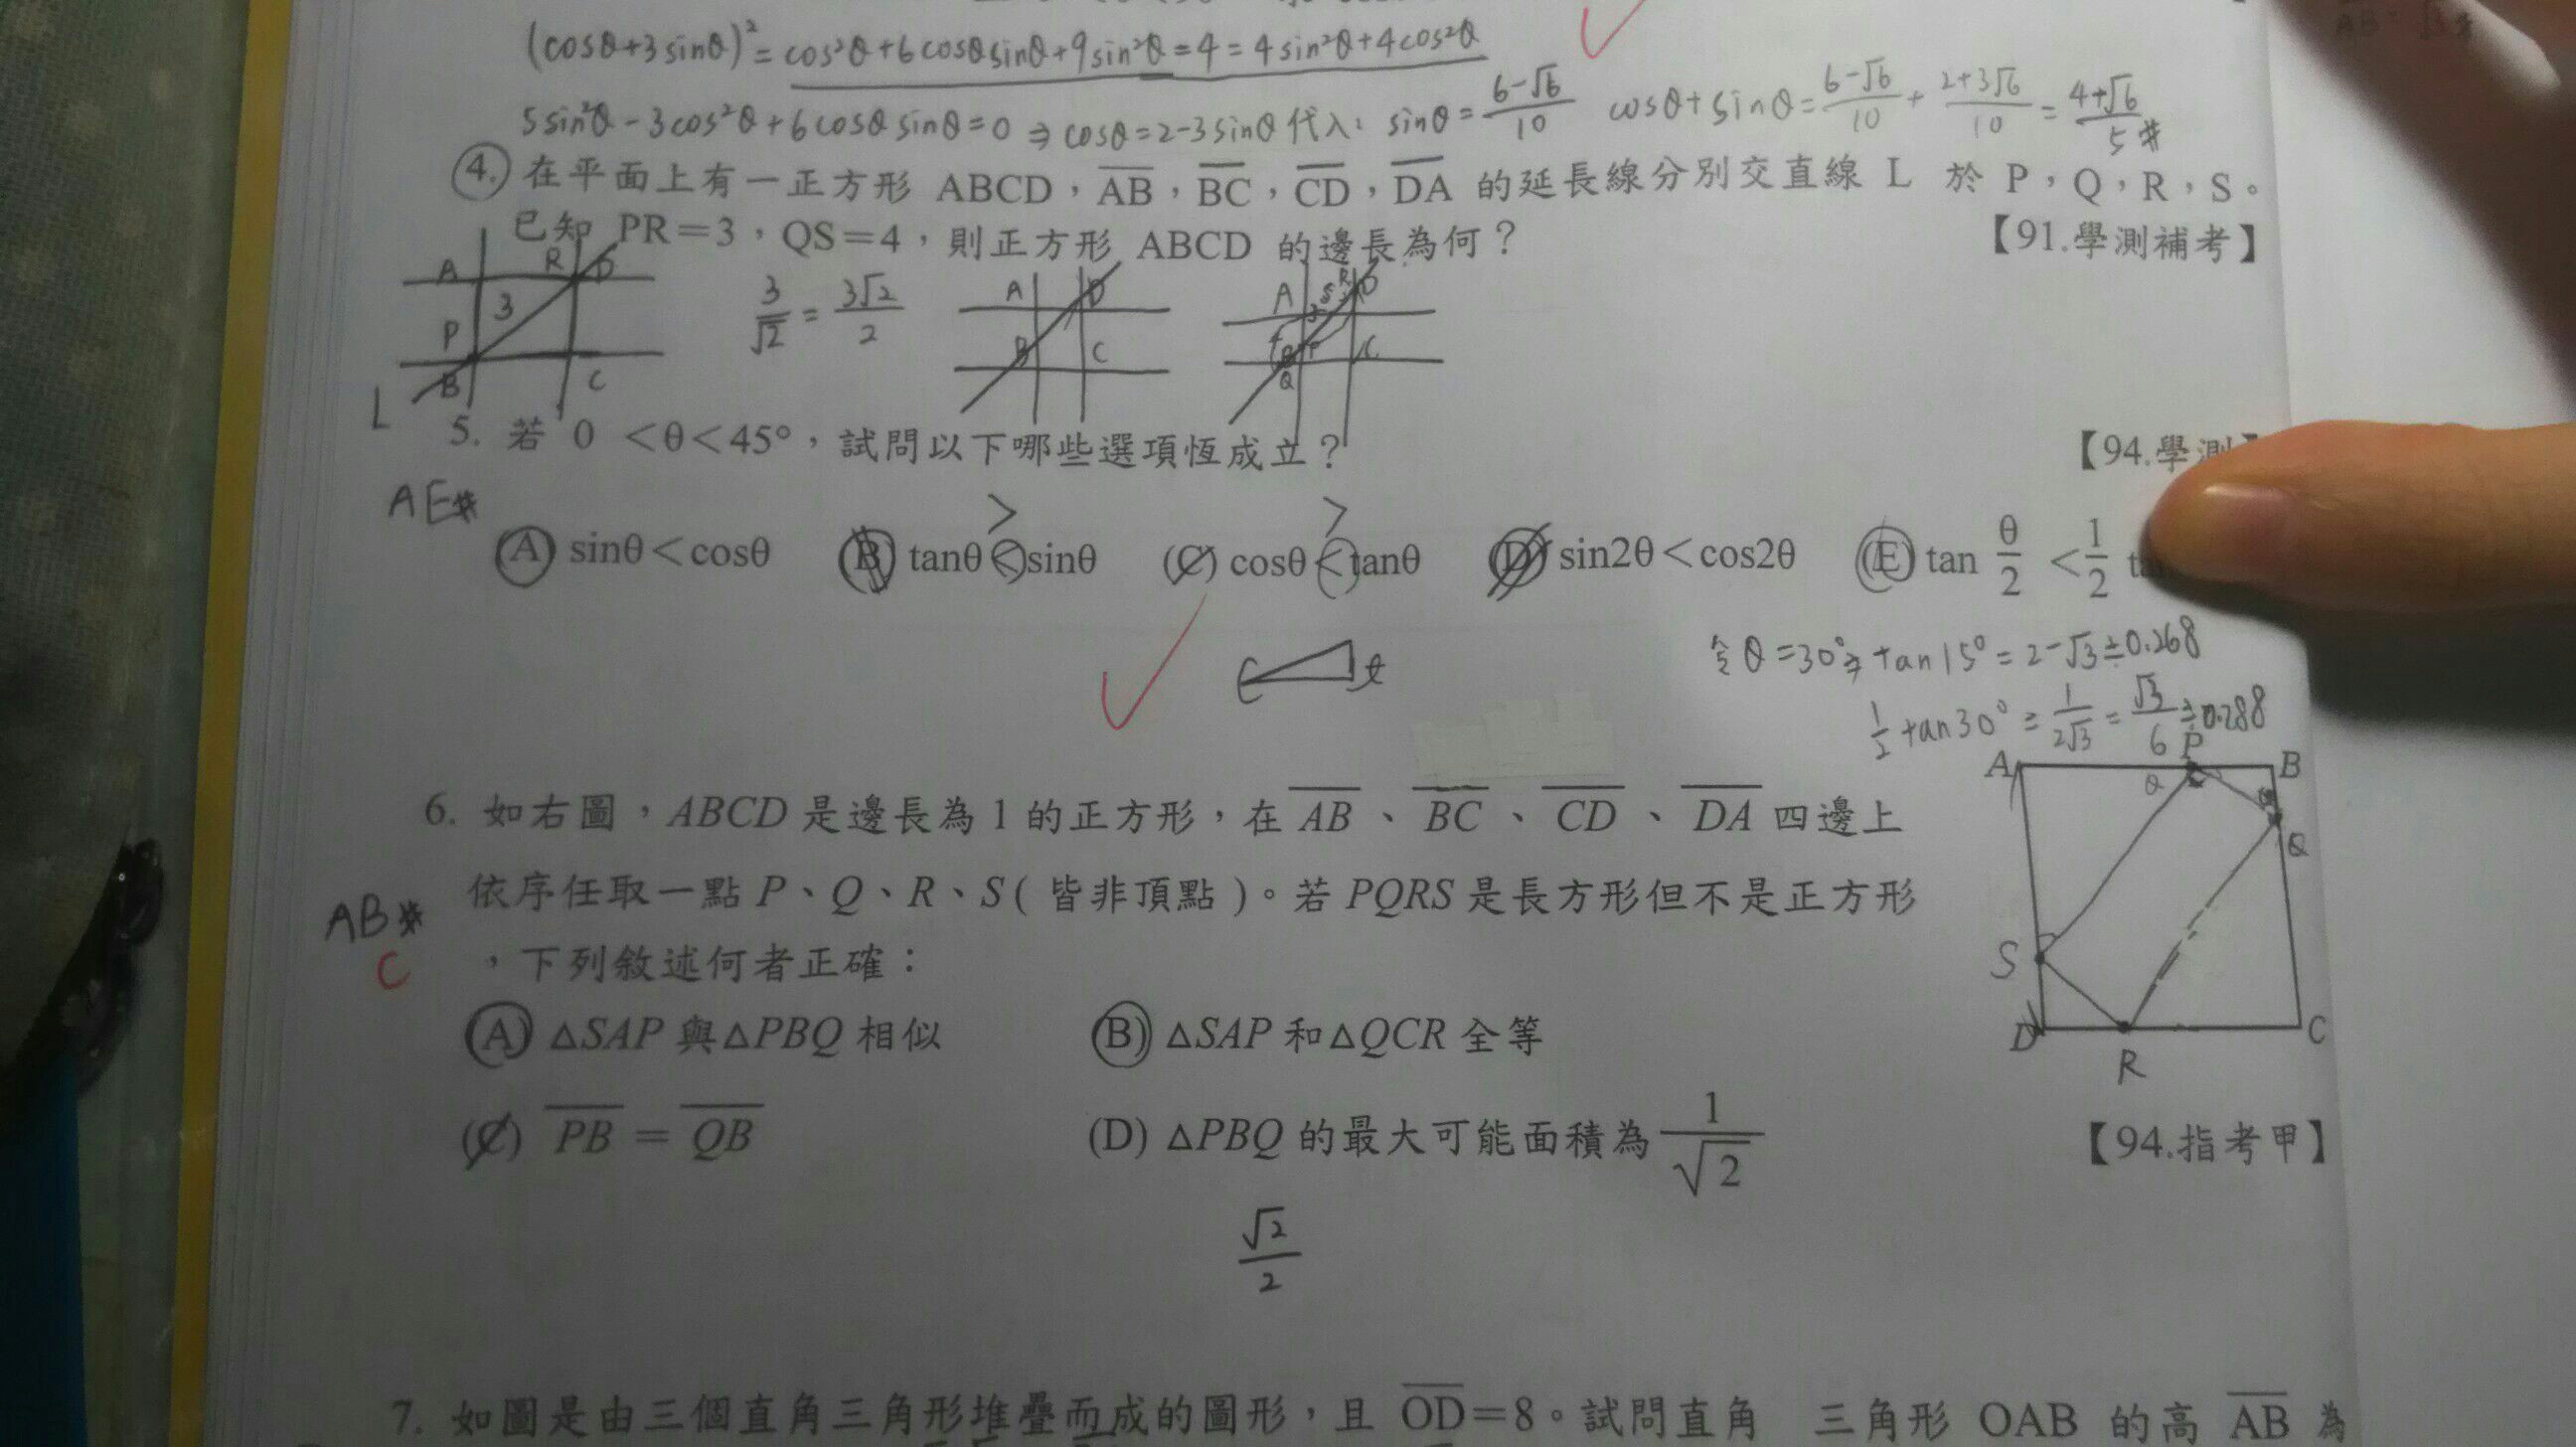 (cosθ+3sinθ)²=cos²θ+6cosθsinθ+9sin²θ=4=4sin²θ+4cos²θ
5sin²θ-3cos²θ+6cosθsinθ=0⇒cosθ=2-3sinθ代入: sinθ=6-√6/10 cosθ+sinθ=6-√6/10+2+3√6/10=4+√6/5#
4. 在平面上有一正方形 ABCD,AB,BC,CD,DA 的延長線分別交直線 L 於 P,Q,R,S。
已知 PR=3,QS=4,則正方形 ABCD 的邊長為何?
【91.學測補考】
A R D
P 3
B C
L
3/√2=3√2/2
A D
B C
A S R D
P C
Q
5. 若 0 <θ<45°,試問以下哪些選項恆成立?
【94.學測
AE#
(A) sinθ<cosθ (B) tanθ<sinθ (C) cosθ<tanθ (D) sin2θ<cos2θ (E) tan θ/2 <1/2
> >
令θ=30°⇒tan15°=2-√3≒0.268
1/2 tan30°=1/2√3=√3/6≒0.288
6. 如右圖,ABCD 是邊長為 1 的正方形,在 AB、BC、CD、DA 四邊上
依序任取一點 P、Q、R、S( 皆非頂點 )。若 PQRS 是長方形但不是正方形
,下列敘述何者正確:
AB#
C
A P B
θ
Q
S
D R C
(A) △SAP 與△PBQ 相似 (B) △SAP 和△QCR 全等
(C) PB = QB (D) △PBQ 的最大可能面積為 1/√2
【94.指考甲】
√2/2
7. 如圖是由三個直角三角形堆疊而成的圖形,且 OD=8。試問直角 三角形 OAB 的高 AB 為